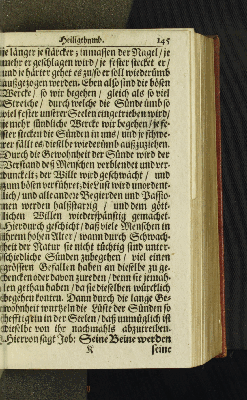 Heiligthumb. 145
je länger je stärcker; inmassen der Nagel / je
mehr er geschlagen wird / je fester stecket er /
und je härter gehet es zu / so er soll wiederumb
außgezogen werden. Eben also sind die bösen
Wercke / so wir begehen / gleich als so viel
Streiche / durch welche die Sünde umb so
viel fester unserer Seelen eingetrieben wird /
je mehr sündliche Wercke wir begehen / je fe-
ster stecken die Sünden in uns / und je schwe-
rer fällt es dieselbe wiederumb außzuziehen.
Durch die Gewohnheit der Sünde wird der
Verstand deß Menschen verblendet und ver-
dunckelt; der Wille wird geschwächt / und
zum bösen verführet; die Lust wird unordent-
lich / und alle andere Begierden und Passio-
nen werden halßstarrig / und dem gött-
lichen Willen wiederspänstig gemachet.
Hierdurch geschicht / daß viele Menschen in
ihrem hohen Alter / wann durch Schwach-
heit der Natur sie nicht tüchtig sind unter-
schiedliche Sünden zubegehen / viel einen
grössern Gefallen haben an dieselbe zu ge-
dencken oder davon zu reden / denn sie jemah-
len gethan haben / da sie dieselben würcklich
begehen konten. Dann durch die lange Ge-
wohnheit wurtzeln die Lüste der Sünden so
hefftig ein in der Seelen / daß unmüglich ist
dieselbe von ihr nachmahls abzutreiben.
Hiervon sagt Job: Seine Beine werden
K seine